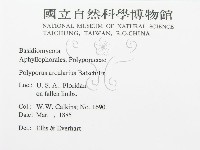 國立自然科學博物館
NATIONAL MUSEUM OF NATURAL SCIENCE
TAICHUNG, TAIWAN, R.O.CHINA
Basidiomycota
Aphyllophorales, Polyporaceae
Polyporus arcularius Batsch:Fr.
Loc: U. S. A. Florida:
on fallen limbs.
Col: W.W. Calkins, No. 1690
Date: Mar. , 1886
Det: Ellis & Everhart